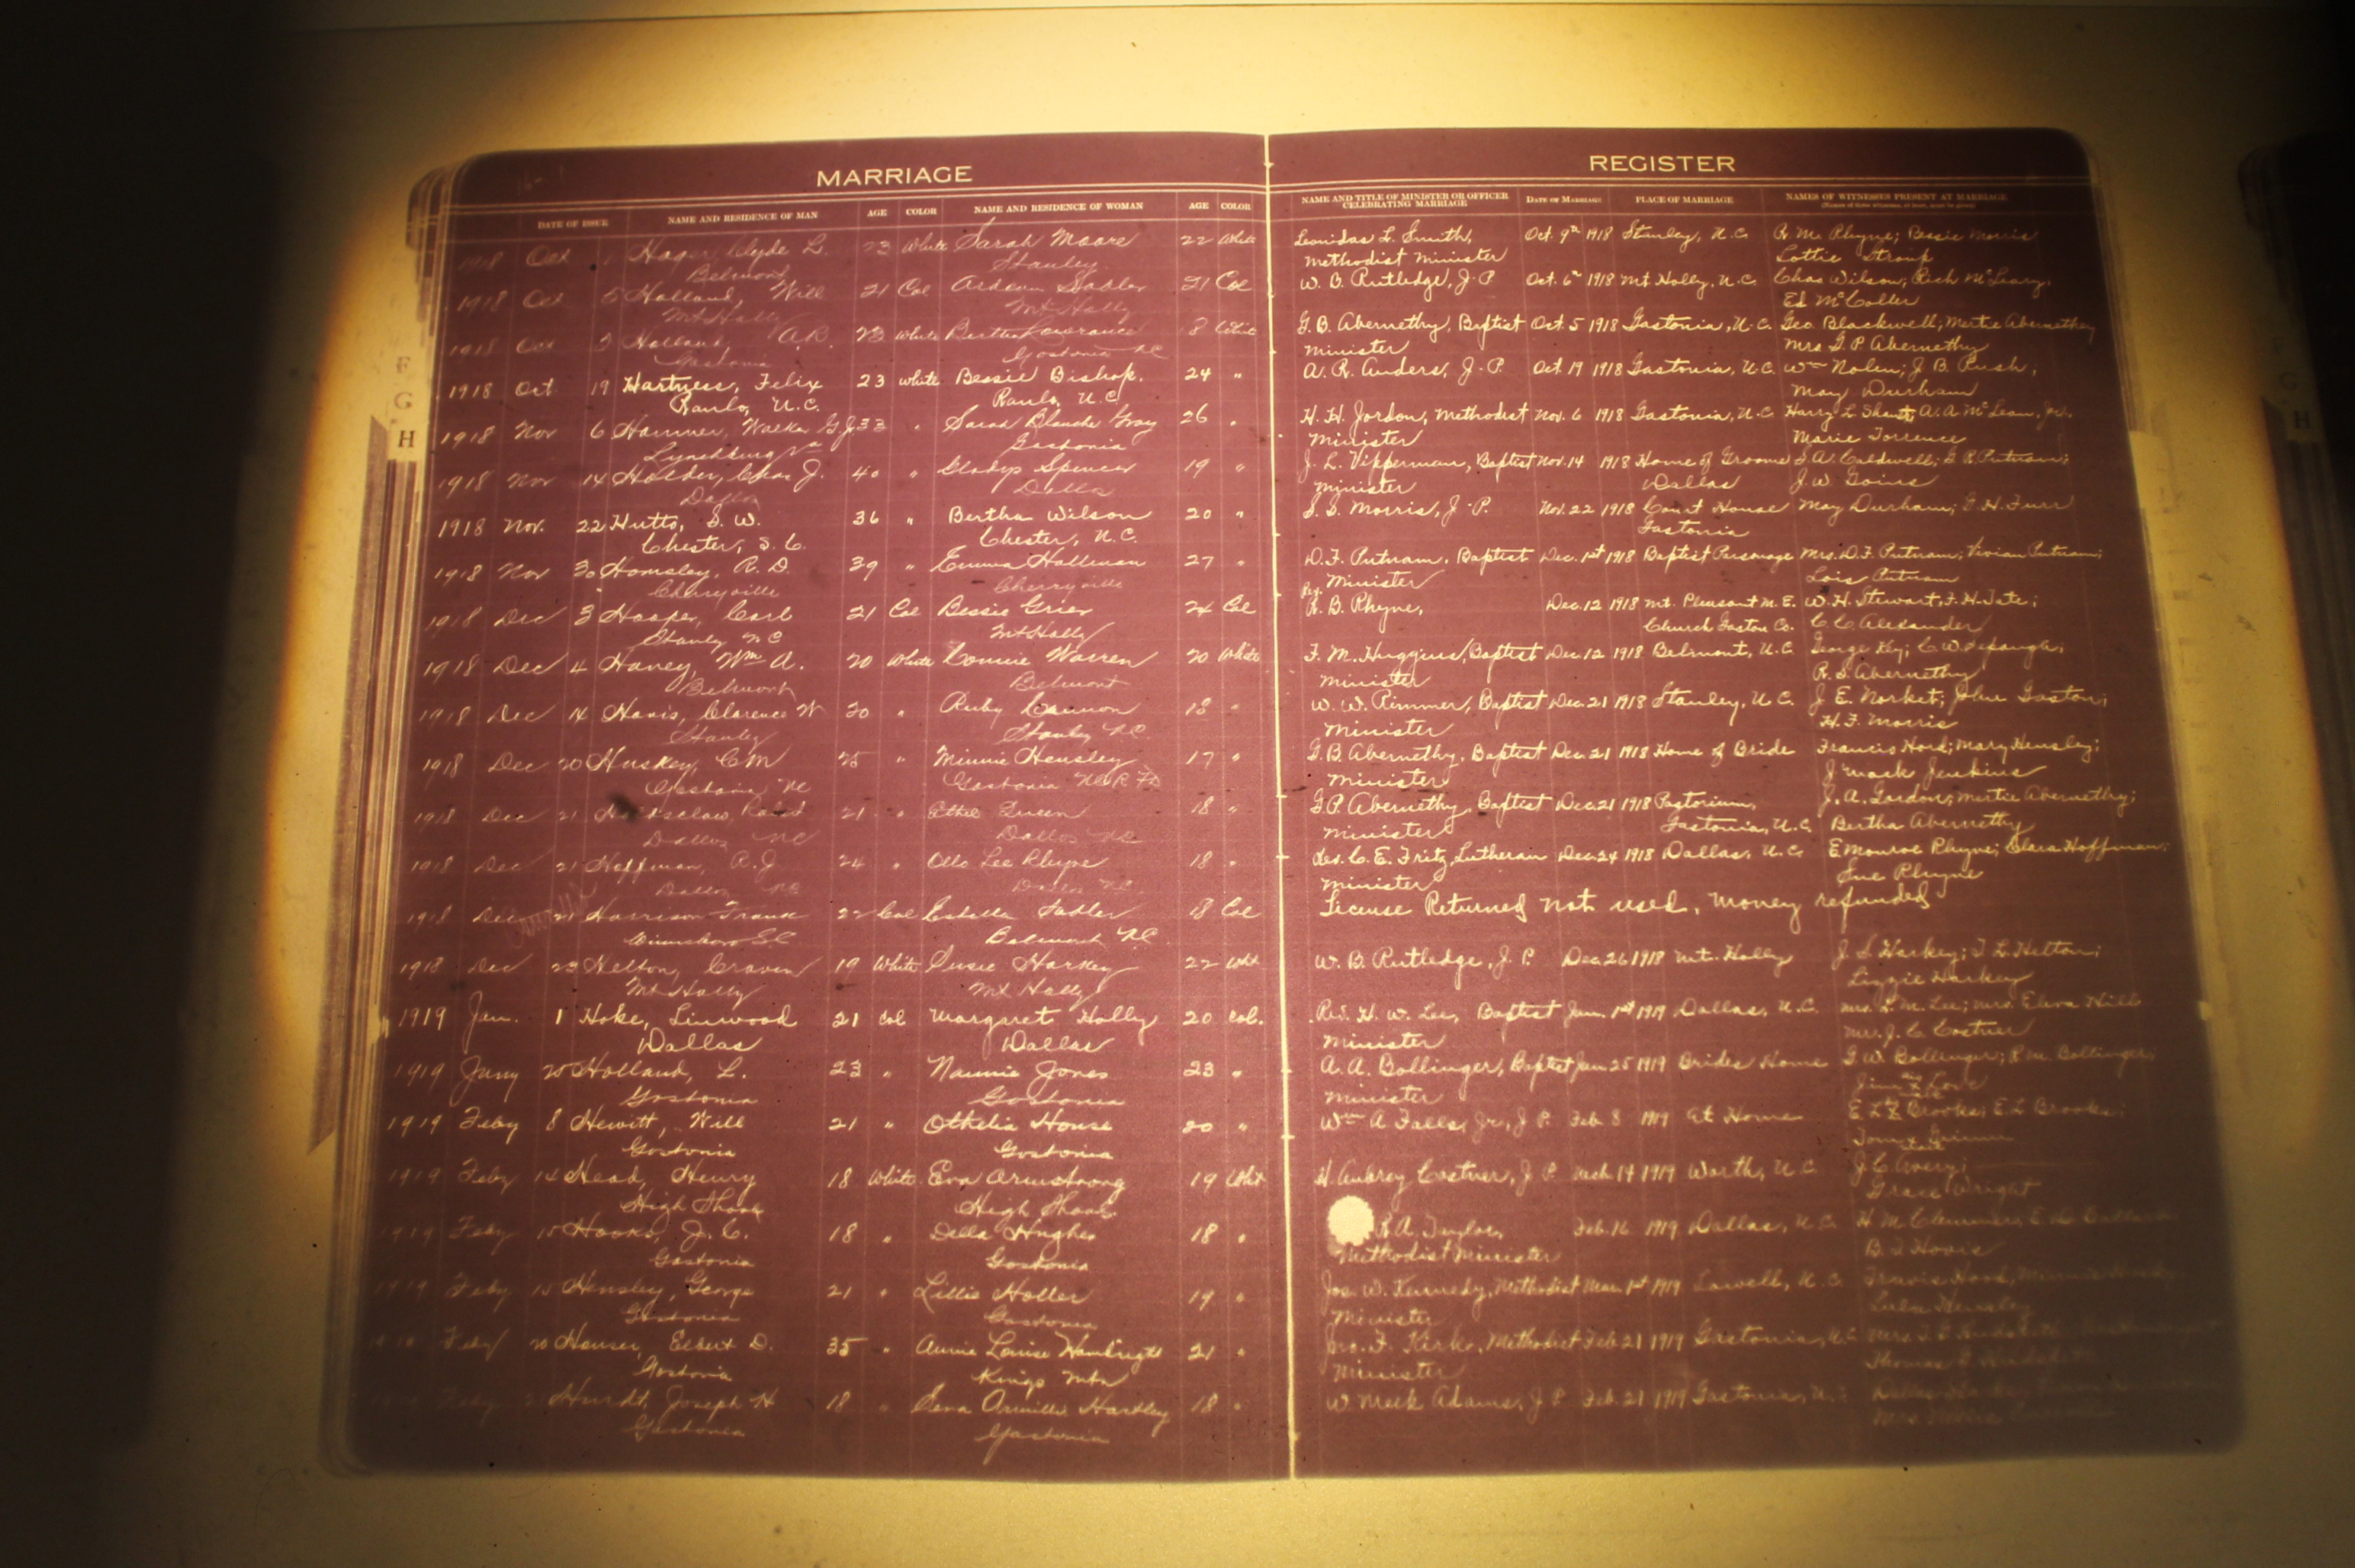 MARRIAGE
REGISTER
DATE OF ISSUE NAME AND RESIDENCE OF MAN AGE COLOR NAME AND RESIDENCE OF WOMAN AGE COLOR
NAME AND TITLE OF MINISTER OR OFFICER CELEBRATING MARRIAGE DATE OF MARRIAGE PLACE OF MARRIAGE NAMES OF WITNESSES PRESENT AT MARRIAGE
1918 Oct 1 Hager, Clyde L. 23 White Sarah Moore 22 White Leonidas L. Smith, Oct. 9th 1918 Stanley, N.C. R. M. Rhyne; Bessie Morris
Belmont Stanley Methodist Minister Lottie Stroup
1918 Oct 5 Holland, Will 21 Col 21 Col W. B. Rutledge, J.P. Oct. 6th 1918 Mt. Holly, N.C. Chas Wilson, Rich McLeary,
Mt Holly Mt Holly Ed McColler
1918 Oct 5 Holland, A.R. 23 White Bertha Lowrance 18 White G. B. Abernethy, Baptist Oct. 5 1918 Gastonia, N.C. Geo. Blackwell; Mertie Abernethy
Gastonia Gastonia NC Minister Mrs G. P. Abernethy
F
G
H
1918 Oct 19 Hartness, Felix 23 White Bessie Bishop. 24 " A. R. Anders, J.P. Oct. 19 1918 Gastonia, N.C. Wm Nolen; J. B. Rush;
Ranlo, N.C. Ranlo, N.C. May Durham
1918 Nov 6 Hammer, Walker G J. 33 " Sarah Blanche Gray 26 " H. H. Jordon, Methodist Nov. 6 1918 Gastonia, N.C. Harry L. A. A. McLean, Jr.
Lynchburg Va Gastonia Minister Marie Torrence
1918 Nov 14 Holder, Chas J. 40 " Gladys Spencer 19 " J. L. Vipperman, Baptist Nov. 14 1918 Home of Groome S. A. Caldwell; G. R. Putnam;
Dallas Dallas Minister Dallas J. W. Goins
1918 Nov. 22 Hutto, S. W. 36 " Bertha Wilson 20 " S. S. Morris, J.P. Nov. 22 1918 Court House May Durham; G. H. Furr
Chester, S. C. Chester, N.C. Gastonia
1918 Nov 30 Homsley, R. D. 39 " Emma Hallman 27 " D. F. Putnam, Baptist Dec. 1st 1918 Baptist Parsonage Mrs. D. F. Putnam; Vivian Putnam;
Cherryville Cherryville Minister Lois Putnam
1918 Dec 3 Hooper, Carl 21 Col Bessie Grier 24 Col Rev. R. B. Rhyne, Dec. 12 1918 Mt. Pleasant M. E. W. H. Stewart, F. H. Tate;
Stanly NC Mt Holly Church Gaston Co. C. C. Alexander
1918 Dec 4 Haney, Wm A. 20 White Connie Warren 20 White F. M. Huggins, Baptist Dec. 12 1918 Belmont, N.C. George Key;
Belmont Belmont Minister R. S. Abernethy
1918 Dec 14 Havis, Clarence W 20 " Ruby Cannon 18 " W. W. Rimmer, Baptist Dec. 21 1918 Stanley, N.C. J. E. Norket; John Gaston;
Stanley Stanley NC Minister H. F. Morris
1918 Dec 20 Huskey, C M 25 " Minnie Hensley 17 " G. B. Abernethy, Baptist Dec 21 1918 Home of Bride Francis Hord; Mary Hensley;
Gastonia NC Gastonia NC Minister J Mack Jenkins
1918 Dec 21 21 " Ethel Queen 18 " G. P. Abernethy, Baptist Dec. 21 1918 Pastorium, J. A. Gordon; Mertie Abernethy;
Dallas NC Dallas NC Minister Gastonia, N.C. Bertha Abernethy
1918 Dec 21 Hoffman, R. J 24 " Ollo Lee Rhyne 18 " Rev. C. E. Fritz, Lutheran Dec. 24 1918 Dallas, N.C. E Monroe Rhyne; Clara Hoffman;
Dallas NC Dallas NC Minister Sue Rhyne
1918 Dec 21 Harrison Frank 22 Col Estella Sadler 18 Col License Returned not used, money refunded
Winnsboro S.C. Belmont NC
1918 Dec 23 Helton, Craven 19 White Susie Harkey 22 Wht W. B. Rutledge, J. P. Dec. 26 1918 Mt. Holly J. S. Harkey; T. L. Helton;
Mt Holly Mt Holly Lizzie Harkey
1919 Jan. 1 Hoke, Linwood 21 Col Margaret Holly 20 Col. Rev. H. W. Lee, Baptist Jan. 1st 1919 Dallas, N.C. Mrs. L. M. Lee; Mrs. Elva Hill
Dallas Dallas Minister Mrs. J. C. Costner
1919 Jany 25 Holland, L. 23 " Nannie Jones 23 " A. A. Bollinger, Baptist Jan 25 1919 Brides Home G. W. Bollinger; R. M. Bollinger;
Gastonia Gastonia Minister Jim Love
1919 Feby 8 Hewitt, Will 21 " Othelia House 20 " Wm A Falls, Jr., J. P. Feb. 8 1919 At Home E. L. Brooks; E L Brooks;
Gastonia Gastonia Tom
1919 Feby 14 Head, Henry 18 White Eva Armstrong 19 Whit H. Aubrey Costner, J. P. Mch. 14 1919 Worth, N.C. J. C. Avery;
High Shoals High Shoals Grace Wright
1919 Feby 15 Hooks, J. C. 18 " Della Hughes 18 " R. A. Taylor, Feb. 16 1919 Dallas, N.C. H. M. Clemmer,
Gastonia Gastonia Methodist Minister B. F. Hovis
1919 Feby 15 Hensley, George 21 " Lillie Holler 19 " Jos. W. Kennedy, Methodist Mar. 1st 1919 Lowell, N.C. Travis Hood,
Gastonia Gastonia Minister Lula Hensley
Feby 20 Houser, Elbert D. 35 " Annie Louise Hambright 21 " Jno. F. Kirk, Methodist Feb 21 1919 Gastonia, N.C. Mrs.
Gastonia Kings Mtn Minister Thomas
Feby Hurdt, Joseph H 18 " Hartley 18 " W. Meek Adams, J. P. Feb. 21 1919 Gastonia, N.C.
Gastonia Gastonia